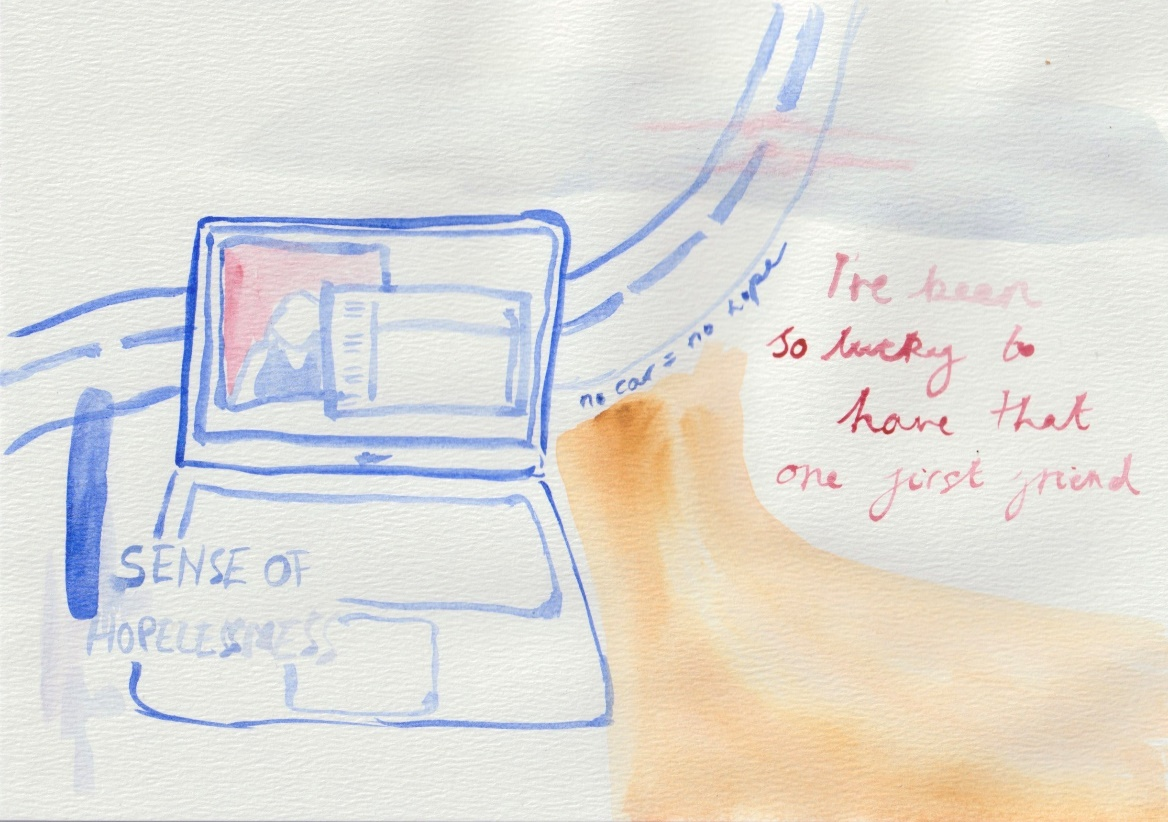 no car = no hope
I've been
so lucky to
have that
one first friend
SENSE OF
HOPELESSNESS